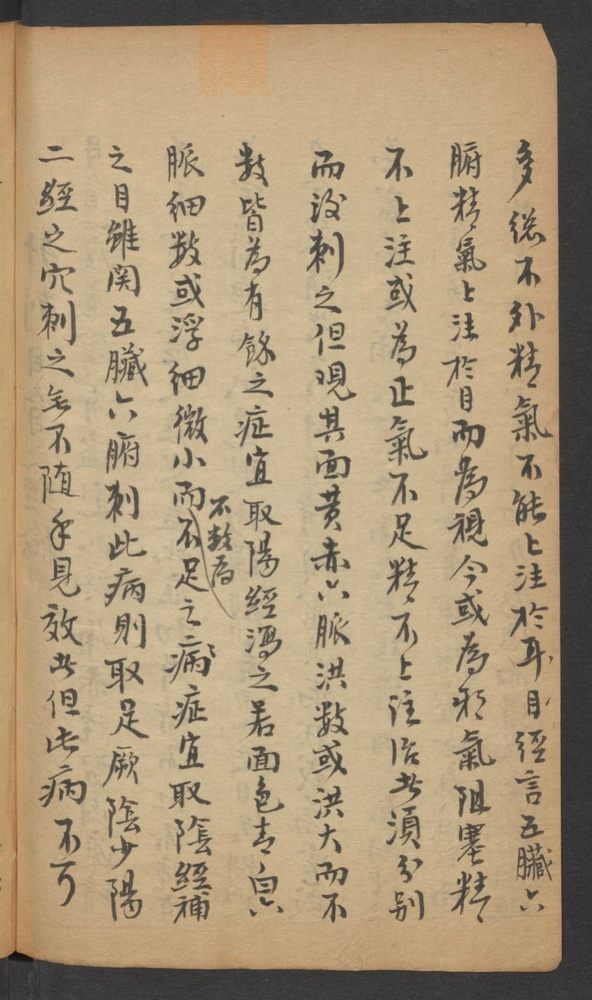 多總不外精氣不能上注於耳目經言五臟六
腑精氣上注於目而為視今或為邪氣阻塞精
不上注或為正氣不足精不上注治者須分別
而後刺之但观其面黄赤六脈洪数或洪大而不
数皆為有餘之症宜取陽經瀉之若面色青白六
脈细数或浮细微小而不足之病症宜取陰經補
不数為
之目雖関五臟六腑刺此病則取足厥陰少陽
二經之穴刺之無不随手見效者但此病不可